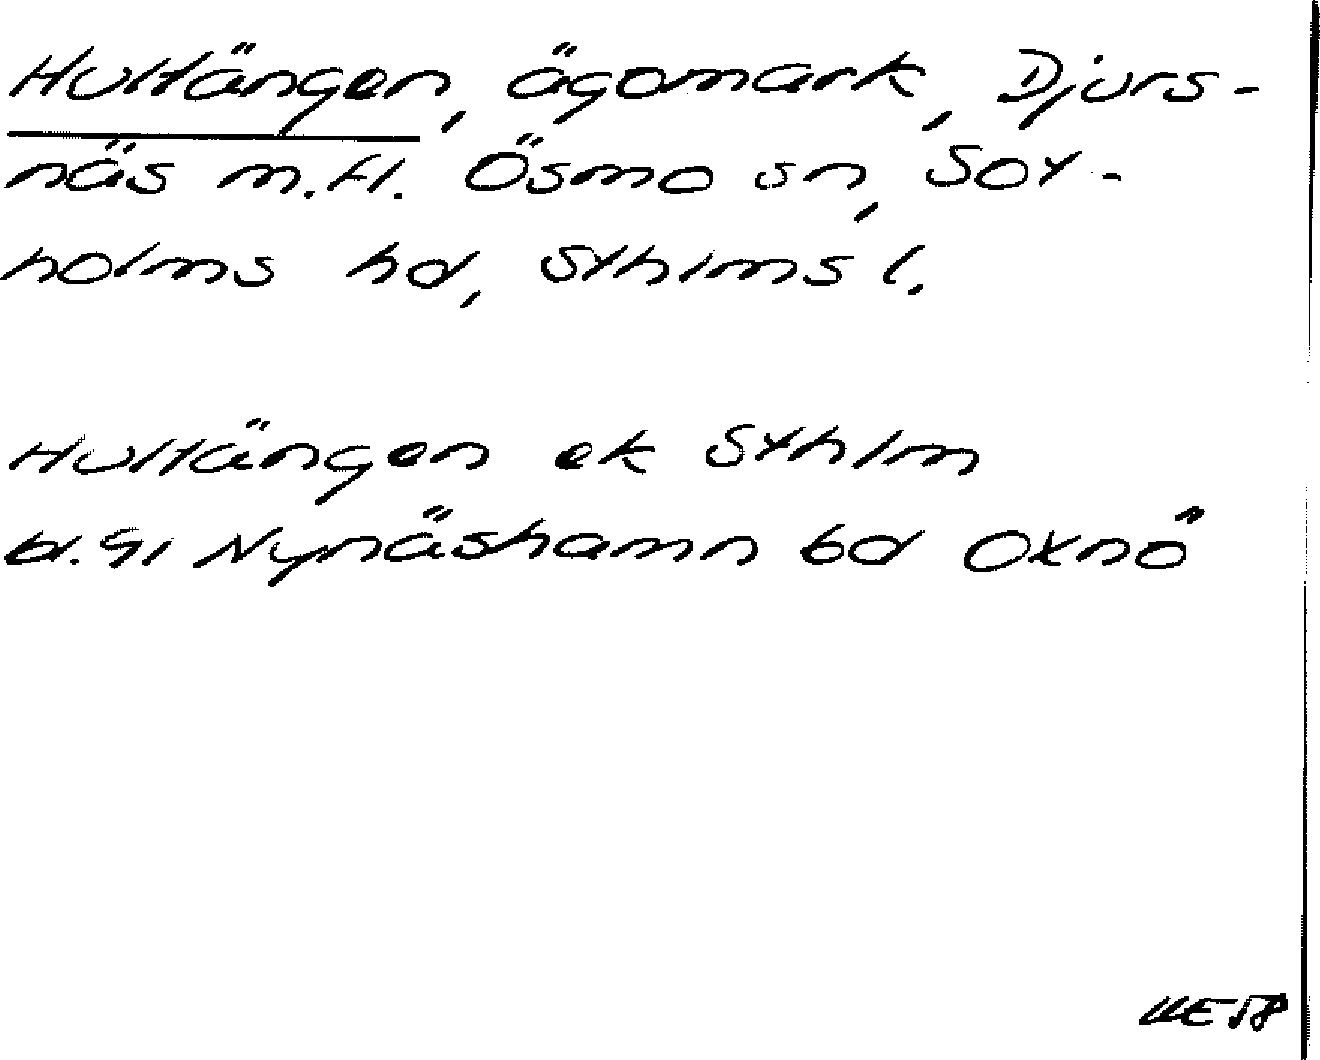 Hultängen, ägomark, Djurs-
näs m.fl. Ösmo sn, Sot-
holms hd, Sthlms l.
Hultängen ek Sthlm
bl. 91 Nynäshamn bd Oxnö
UE 58